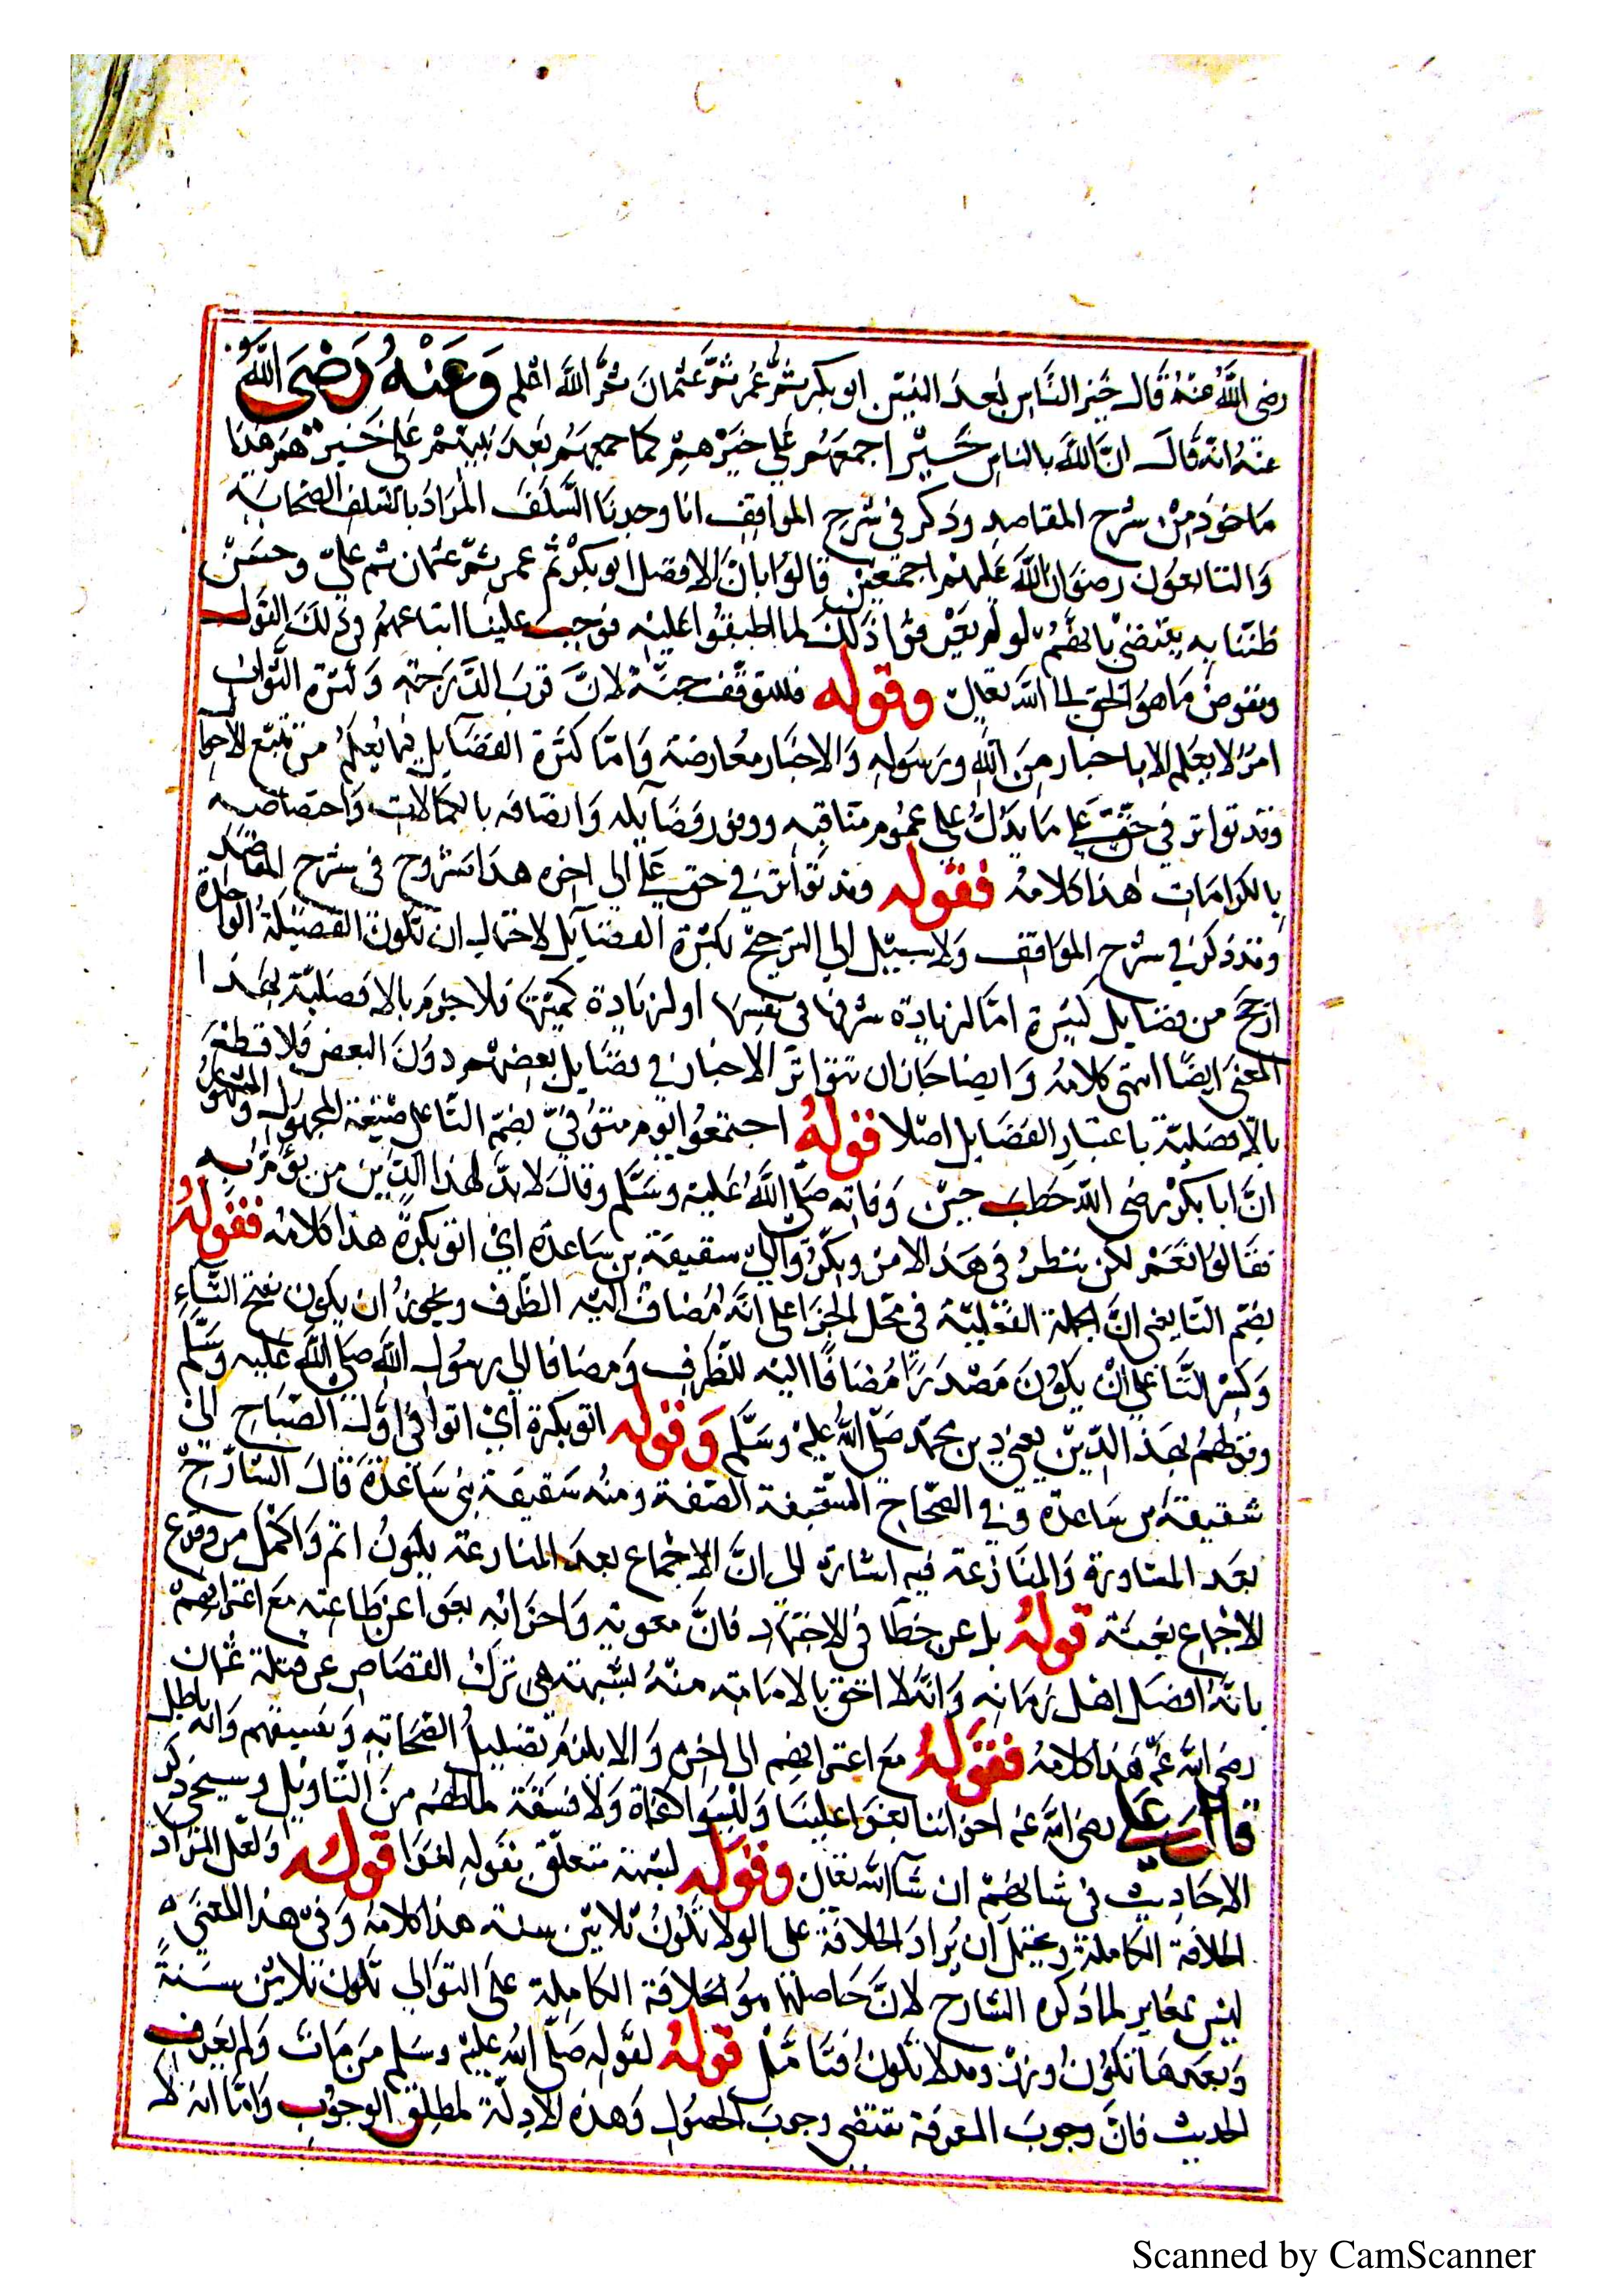 رضى اللّٰه عنهُ قال خير النّاس بعد النبيّن ابو بكر ثمّ عمر ثمّ عثمان ثمّ اللّٰه اعلم وَعَنْهُ رَضىَ اللّٰه
عنهُ انه قال انّ اللّٰه بالناس خَيْرا جمعَهُم على خيرهم كما جمعهم بَعدَ نبيهم على خير هم هذا
ماخوذ من شرح المقاصد وذكر فى شرح المواقف انا وجدنا السَّلَفَ المرَادُ بالسّلف الصحابة
وَالتابعون رضوَان اللّٰه عَليهم اجمعين قالوُا بانّ الافضل ابو بكر ثم عمر ثمّ عثمان ثم علىّ وحسن
ظننا به يقتضى بانهُّم لو لم يعرفوا ذلك لما اطبقُوا عليه فوجب علينا اتباعهُم فى ذلك القَول
ونفوض مَا هوَ الحق الى اللّٰه تعالى وقوله فللتوقّف جهة لانّ قربَ الدّرجة وَكثرة الثّواب
امرٌ لا يعلم الا باخبار من اللّٰه ورسوله وَالاخبَار معُارضة وَامّا كثرة الفضَايل فما يُعلم من تتبّع الاحوا
وقد تواتر فى حقّ على مَا يدلّ على عموُم مناقبه ووفور فضَايله وَاتصَافه بالكمالات وَاختصاصه
بالكرامَات هذا كلامُه فقوله وقد تواتر فى حق على الى اخره هذا مشروح فى شرح المقاصد
وقد ذكر فى شرح الموَاقف وَلا سبيل الى الترجيح بكثرة الفضَايل لاحتمال ان تكون الفضيلة الواحدة
ارجح من فضايل كثيرة امّا لزيادة شرفها فى نفسها او لزيادة كميّتها فلا جزم بالافضليّة بهذا
المعنى ايضًا انتهى كلامُه وَايضا جَاز ان تتواتر الاخبار فى فضَايل بعضهم دون البعض فلا قطع
بالافضليّة باعتبار الفضَايل اصلا قولهُ اجتمعوا يوم متوُفّى بضمّ التّا على صيغة المجهول والمشهور
انّ ابا بكر رضى اللّٰه خطب حين وَفاته صَلّى اللّٰه عليه وسَلّم وقال لا بدّ لهذا الدّين من يقوم به
فقالوا نعَم لكن ننظرُ فى هَذا الامر وبكّروا الى سقيفة بن سَاعدة اىْ اتو بكرةً هذا كلامُه فقولهُ
بضم التّا يعنى انّ الجملة الفعليّة فى محّل الجر اعلى انّه مضاف اليه الظرف ويجوز ان يكون بفتح التّاءِ
وَكسر التّا على انْ يكوُن مَصْدَرًا مُضَافًا اليه للظّرف وَمضافا الى رسوُل اللّٰه صلى اللّٰه عَليه وَسَلّم
وقولهم بهَذ الدّين يعنى دين محمّد صَلّى اللّٰه عليْه وسَلّم وَقوله اتو بكرة اىْ اتوا فى اوّل الصّباح الى
شقيفة بن سَاعدة وَفى الصّحاح السّقيفة الصّفة ومنهُ سَقيفَة بنى سَاعدةَ قالَ الشّارحُ
بعَد المشاورة وَالمنَازعة فيه اشارة الى انّ الاجماع بعد المنازعة يكوُن اتم وَاكمل من وقوع
الاجماع بغيته قولهُ بل عن خطَا فى الاجتهاد فانّ معويه وَاحزابه بغَوا عن طَاعته مع اعترافهم
بانّهُ افضَل اهل زمَانه وَانّه لا احق بالامامة منْهُ بشبهة هى تركُ القصَاص عن قتلة عثمان
رضى اللّٰه عنْه هَذا كلامُه فقوَلهُ مع اعترافهم الى اخره وَالا يلزم تضليل الصّحَابة وَتفسيقهم وَانّه باطل
قال على رضى اللّٰه عنه اخواننا بغوَا علينا وَليسوا كفاة وَلا فسقَة لما لهُم من التّاويل وسيجى ذكر
الاحَاديث فى شانهم ان شآ اللّٰه تعالى وقوله لشبهة متعلّق بقوله لغوا قولهُ وَلعل المرَاد
الخلافة الكاملة ويحتمل ان يُراد الخلافَة على الولا تكوُن ثلاثين سنة هذا كلامُه وَفى هذا المعنى
ليس بمغاير لما ذكره الشارح لانّ حَاصلها هوَ الخلافة الكاملة على التوَالى تكون ثلاثين سَنةً
وَبعدهَا تكوُن وَقد لا تكون فتَا مّل قولهُ لقوله صَلّى اللّٰه عليه وسَلم من مَات وَلم يعرف
الحديث فانّ وجوبَ المعرفة تقتضى وجوبَ الحصوُل وَهذه الادلّة لمطلق الوجوب وَامّا انه لا
Scanned by CamScanner